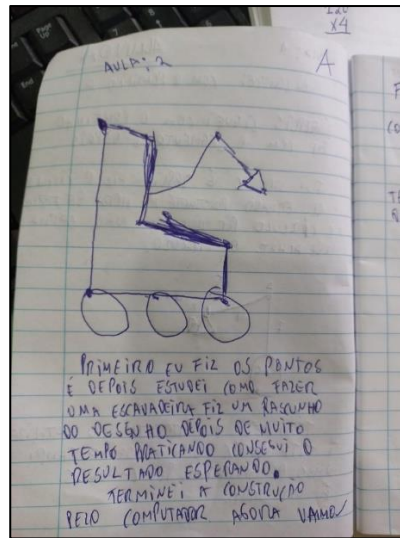 AULA: 2
A
PRIMEIRO EU FIZ OS PONTOS
É DEPOIS ESTUDEI COMO FAZER
UMA ESCAVADEIRA FIZ UM RASCUNHO
DO DESENHO DEPOIS DE MUITO
TEMPO PRATICANDO CONSEGUI O
RESULTADO ESPERANDO.
TERMINEI A CONSTRUÇÃO
PELO COMPUTADOR AGORA VAMOS
x4